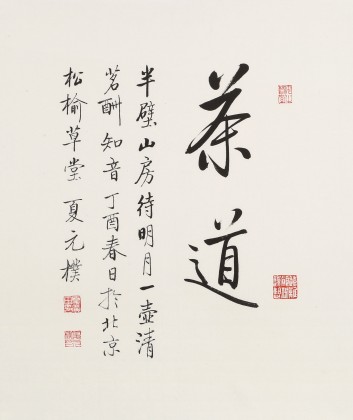 茶道
半壁山房待明月一壺清
茗酬知音丁酉春日於北京
松榆草堂夏元樸